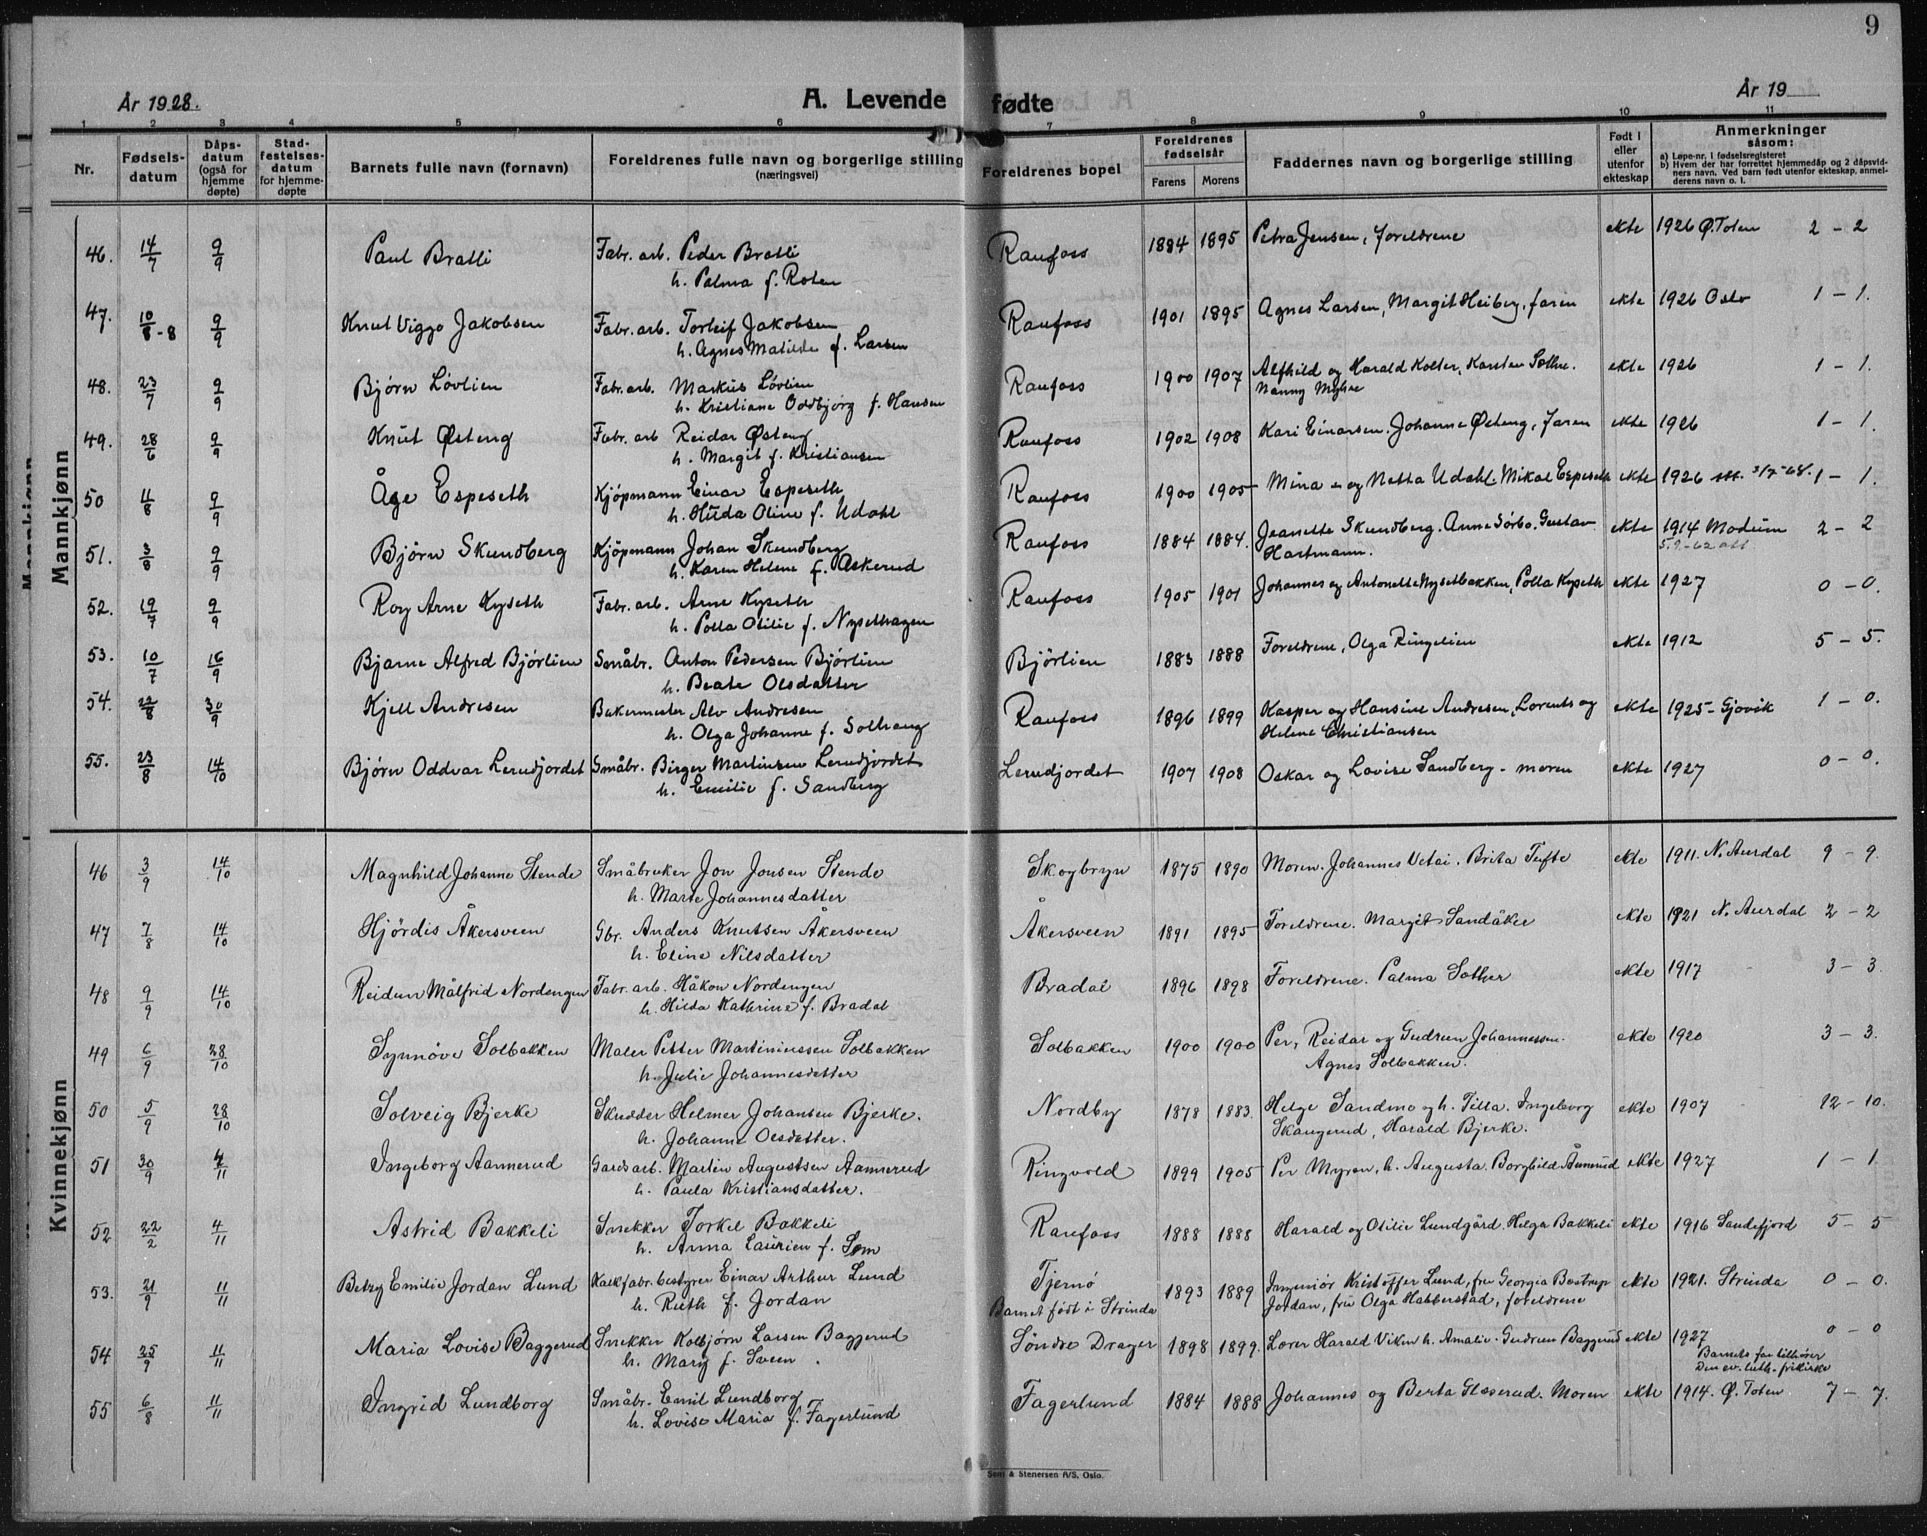 9
År 1928. A. Levende fødte År 19
1 2 3 4 5 6 7 8 9 10 11
Nr. Fødselsdatum Dåpsdatum (også for hjemmedøpte) Stadfestelsesdatum for hjemmedøpte Barnets fulle navn (fornavn) Foreldrenes fulle navn og borgerlige stilling (næringsvei) Foreldrenes bopel Foreldrenes fødselsår Farens Morens Faddernes navn og borgerlige stilling Født i eller utenfor ekteskap Anmerkninger såsom: a) Løpe-nr. i fødselsregisteret b) Hvem der har forrettet hjemmedåp og 2 dåpsvidners navn. Ved barn født utenfor ekteskap, anmelderens navn o. l.
Mannkjønn
46. 14/7 9/9 Paul Bratli Fabr. arb. Peder Bratli Raufoss 1884 1895 Petra Jensen, foreldrene ekte 1926 Ø. Toten 2 - 2
h. Palma f. Roten
47. 10/8-8 9/9 Knut Viggo Jakobsen Fabr. arb. Torleif Jakobsen Raufoss 1901 1895 Agnes Larsen, Margit Heiberg, faren ekte 1926 Oslo 1 - 1.
h. Agnes Matilde f. Larsen
48. 23/7 9/9 Bjørn Løvlien Fabr. arb. Markus Løvlien Raufoss 1900 1907 Alfhild og Harald Kolter, Karsten Sethre. ekte 1926 1 - 1.
h. Kristiane Oddbjørg f. Hansen Nanny Myhre
49. 28/6 9/9 Knut Østeng Fabr. arb Reidar Østeng Raufoss 1902 1908 Kari Einarsen. Johanne Østeng, faren ekte 1926 1 - 1.
h. Margit f. Kristiansen
50 11/8 9/9 Åge Espeseth Kjøpmann Einar Espeseth Raufoss 1900 1905 Mina og Netta Udahl. Mikal Espeseth ekte 1926 att. 3/7-68. 1 - 1.
h. Hilda Oline f. Udahl
51. 3/8 9/9 Bjørn Skundberg Kjøpmann Johan Skundberg Raufoss 1884 1884. Jeanette Skundberg. Anne Sørbo. Gustav ekte 1914 Modum 2 - 2
h. Karen Helene f. Askerud Hartmann. 5.9-62 att
52. 19/7 9/9 Roy Arne Kyseth Fabr. arb. Arne Kyseth Raufoss 1905 1901 Johannes og Antonette Nysetbakken, Polla Kyseth ekte 1927 0 - 0.
h. Polla Otilie f. Nysethagen
53. 10/7 16/9 Bjarne Alfred Bjørlien Småbr. Anton Pedersen Bjørlien Bjørlien 1883 1888 Foreldrene, Olga Ringelien ekte 1912 5 - 5.
h. Beate Olsdatter
54. 22/8 30/9 Kjell Andresen Bakermester Alv Andresen Raufoss 1896 1899 Kasper og Hansine Andresen, Lorents og ekte 1925 - Gjøvik 1 - 0.
h. Olga Johanne f. Solhaug Helene Christiansen
55. 23/8 14/10 Bjørn Oddvar Lerudjordet Småbr. Birger Martinsen Lerudjordet Lerudjordet 1907 1908 Oskar og Lovise Sandberg - moren ekte 1927 0 - 0.
h. Emilie f. Sandberg
Kvinnekjønn
46 3/9 14/10 Magnhild Johanne Stende Småbruker Jon Jonsen Stende Skogbryn 1875 1890 Moren. Johannes Vetai. Brita Tufte ekte 1911. N. Aurdal 9 - 9.
h. Marte Johannesdatter
47 7/8 14/10 Hjørdis Åkersveen Gbr. Anders Knutsen Åkersveen Åkersveen 1891 1895 Foreldrene. Margit Sandåker ekte 1921 N. Aurdal 2 - 2
h. Eline Nilsdatter
48 9/9 14/10 Reidun Målfrid Nordengen Fabr. arb. Håkon Nordengen Bradal 1896 1898 Foreldrene. Palma Sother ekte 1917 3 - 3
h. Hilda Kathrine f. Bradal
49 6/9 28/10 Synnøve Solbakken Maler Petter Martiniussen Solbakken Solbakken 1900 1900 Per, Reidar og Gudrun Johannessen. ekte 1920 3 - 3.
h. Julie Johannesdatter Agnes Solbakken.
50 5/9 28/10 Solveig Bjerke Skredder Helmer Johansen Bjerke. Nordby 1878 1883. Helge Sandmo og h. Tilla. Ingeborg ekte 1907 12 - 10.
h. Johanne Olsdatter. Skaugerud, Harald Bjerke.
51 30/9 4/11 Ingeborg Aannerud Gardsarb. Martin Augustsen Aannerud Ringvold 1899 1905 Per Myren, h. Augusta. Borghild Ånnrud ekte 1927 1 - 1.
h. Paula Kristiansdatter.
52 22/2 4/11 Astrid Bakkeli Snekker Torkel Bakkeli Raufoss 1888 1888 Harald og Otilie Lundgård. Helga Bakkeli ekte 1916 Sandefjord 5 - 5
h. Anna Laurien f. Sem
53. 21/9 11/11 Betzy Emilie Jordan Lund Kalkfabr. bestyrer Einar Arthur Lund Tjernø 1893 1889 Ingeniør Kristoffer Lund, fru Georgia Bostrup ekte 1921. Strinda 0 - 0.
h. Ruth f. Jordan Barnet født i Strinda Jordan, fru Olga Habberstad, foreldrene
54 25/9 11/11 Maria Lovise Baggerud Snekker Kolbjørn Larsen Baggerud Søndre Drager 1898 1899. Lærer Harald Viken h. Amalie. Gudrun Baggerud ekte 1927 0 - 0
h. Mary f. Sveen. Barnets far tilhører Den ev. luth. frikirke
55 6/8 11/11 Ingrid Lundborg Småbr. Emil Lundborg Fagerlund 1884 1888 Johannes og Berta Glæserud. Moren ekte 1914. Ø. Toten 7 - 7.
h. Lovise Maria f. Fagerlund
Sem & Stenersen A/S, Oslo.